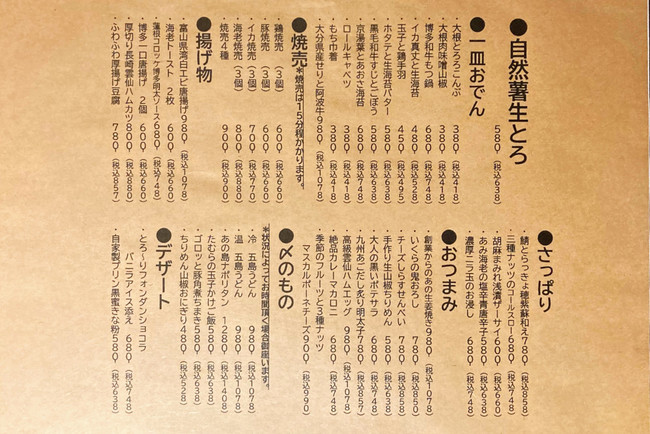 ●自然薯生とろ
580、(税込638)
●一皿おでん
・大根とろろこんぶ 380、(税込418)
・大根肉味噌山椒 380、(税込418)
・博多和牛もつ鍋 680、(税込748)
・イカ真丈と生海苔 480、(税込528)
・玉子と鶏手羽 450、(税込495)
・ホタテと生海苔バター 580、(税込638)
・黒毛和牛すじとごぼう 580、(税込638)
・京湯葉とあおさ海苔 680、(税込748)
・ロールキャベツ 380、(税込418)
・もち巾着 380、(税込418)
・大分県産せりと阿波牛 980、(税込1078)
●焼売※焼売は15分程かかります。
・鶏焼売(3個) 600、(税込660)
・豚焼売(3個) 600、(税込660)
・イカ焼売(3個) 700、(税込770)
・海老焼売(3個) 800、(税込880)
・焼売4種 900、(税込900)
●揚げ物
・富山県湾白エビ唐揚げ 980、(税込1078)
・海老トースト 2枚 600、(税込660)
・蓮根コロッケ博多明太ソース 680、(税込748)
・博多一口唐揚げ 2個 600、(税込660)
・厚切り長崎雲仙ハムカツ 800、(税込880)
・ふわふわ厚揚げ豆腐 780、(税込857)
●さっぱり
・鯖とらっきょ穂紫蘇和え 780、(税込858)
・三種ナッツのコールスロー 680、(税込748)
・胡麻まみれ浅漬ザーサイ 600、(税込660)
・あみ海老の塩辛青唐辛子 580、(税込638)
・濃厚ニラ玉のお浸し 680、(税込748)
●おつまみ
・創業からのあの生姜焼き 980、(税込1078)
・いくらの鬼おろし 780、(税込858)
・チーズしらすせんべい 780、(税込850)
・手作り生山椒ちりめん 580、(税込638)
・大人の黒いポテサラ 680、(税込748)
・九州あごだし炙り明太子 780、(税込857)
・高級雲仙ハムエッグ 980、(税込1078)
・絶品カレーマカロニ 680、(税込748)
・季節のフルーツと3種ナッツ
マスカルポーネチーズ 900、(税込990)
●〆のもの
※状況によってお時間頂く場合御座います。
・冷 五島うどん 980、(税込1078)
・温 五島うどん 980、(税込1078)
・あの島ナポリタン 1280、(税込1408)
・たむらの玉子かけご飯 580、(税込638)
・ゴロッと豚角煮ちまき 580、(税込638)
・ちりめん山椒おにぎり 480、(税込528)
●デザート
・とろ〜りフォンダンショコラ
バニラアイス添え 680、(税込748)
・自家製プリン黒蜜きな粉 580、(税込638)